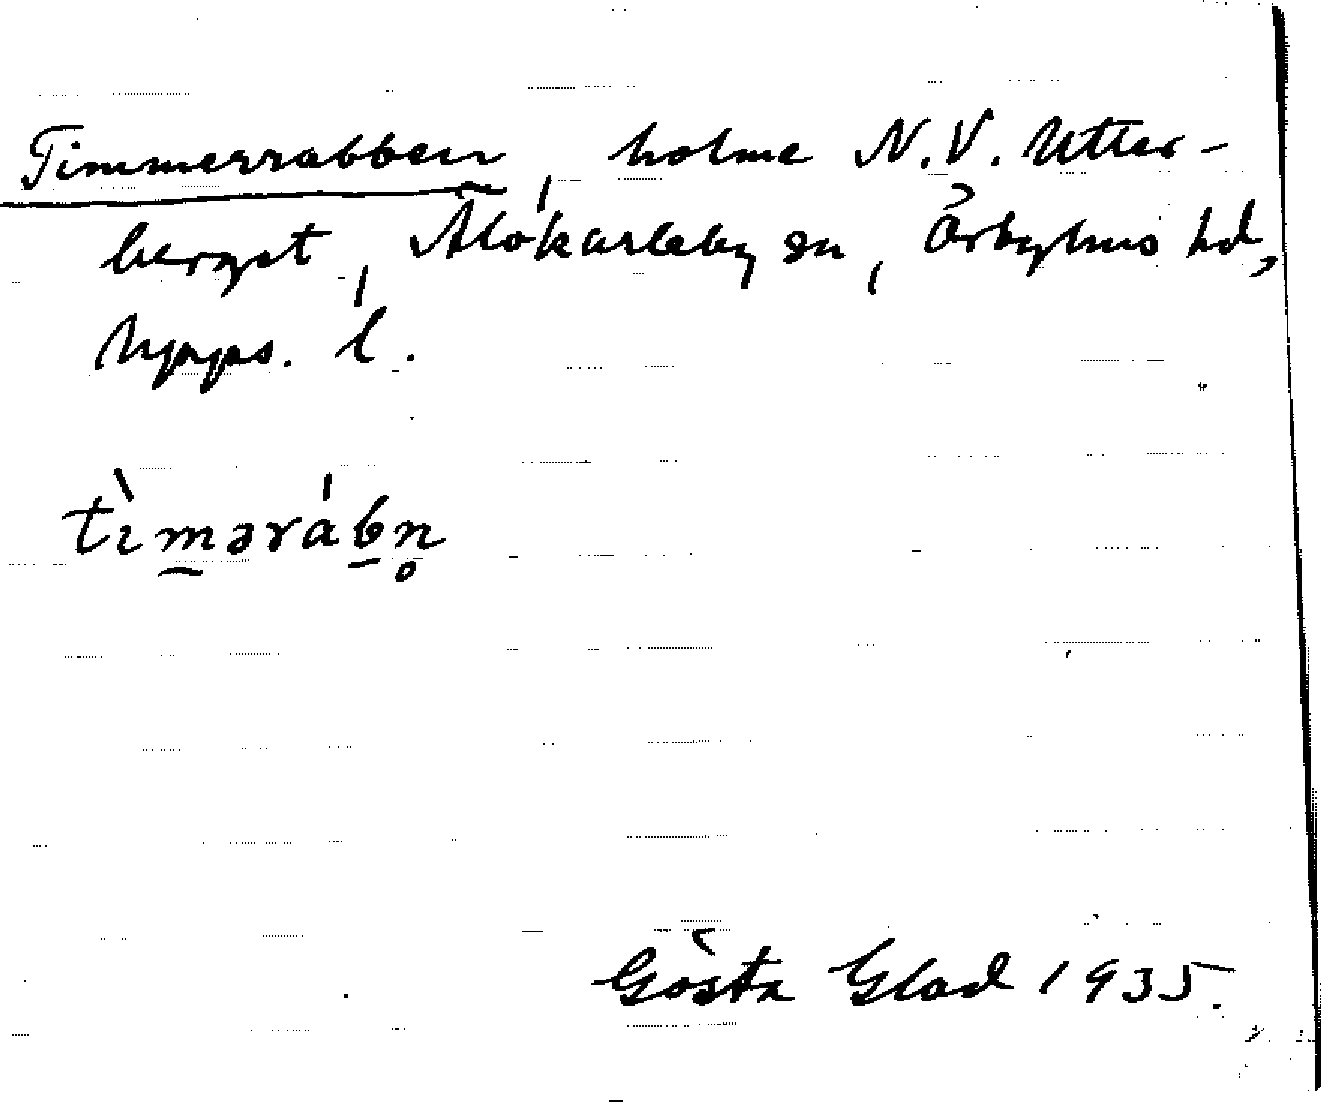 Timmerrabben, holme N.V. Utter-
berget, Älvkarleby sn, Örbyhus hd,
Upps. l.
tìmərábn̥
Gösta Glad 1935.